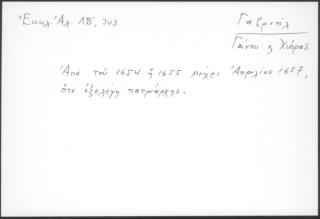 Ἐκκλ. Ἀλ. ΛΒ', 343.
Γαβριήλ
Γάνου κ Χώρας
Ἀπὸ τοῦ 1654 ἢ 1655 μέχρι Ἀπριλίου 1657,
ὅτε ἐξελέγη πατριάρχης.